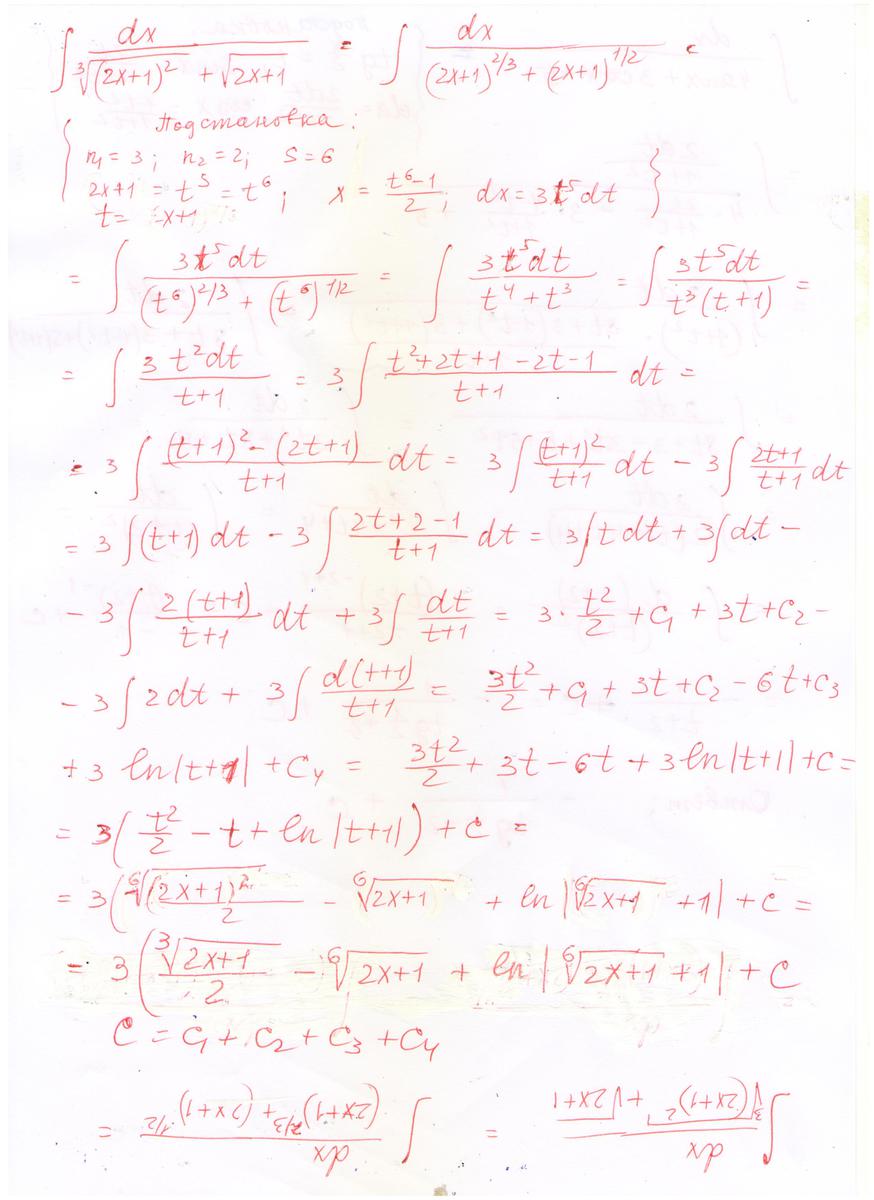 ∫ dx / (∛(2x+1)² + √2x+1) = ∫ dx / ((2x+1)^2/3 + (2x+1)^1/2) =
{ Подстановка:
n₁ = 3; n₂ = 2; S = 6
2x+1 = t^S = t⁶; x = (t⁶-1)/2; dx = 3t⁵dt }
= ∫ 3t⁵dt / ((t⁶)^2/3 + (t⁶)^1/2) = ∫ 3t⁵dt / (t⁴ + t³) = ∫ 3t⁵dt / (t³(t+1)) =
= ∫ 3t²dt / (t+1) = 3∫ (t²+2t+1-2t-1)/(t+1) dt =
= 3∫ ((t+1)² - (2t+1))/(t+1) dt = 3∫ (t+1)²/(t+1) dt - 3∫ (2t+1)/(t+1) dt
= 3∫(t+1)dt - 3∫ (2t+2-1)/(t+1) dt = 3∫tdt + 3∫dt -
- 3∫ 2(t+1)/(t+1) dt + 3∫ dt/(t+1) = 3·t²/2 + C₁ + 3t + C₂ -
- 3∫2dt + 3∫ d(t+1)/(t+1) = 3t²/2 + C₁ + 3t + C₂ - 6t + C₃
+ 3 ln|t+1| + C₄ = 3t²/2 + 3t - 6t + 3 ln|t+1| + C =
= 3(t²/2 - t + ln|t+1|) + C =
= 3(⁶√(2x+1)²/2 - ⁶√2x+1 + ln|⁶√2x+1 + 1| + C =
= 3(∛2x+1/2 - ⁶√2x+1 + ln|⁶√2x+1 + 1| + C
C = C₁ + C₂ + C₃ + C₄
∫ dx / (∛(2x+1)² + √2x+1) = ∫ dx / ((2x+1)^2/3 + (2x+1)^1/2) =